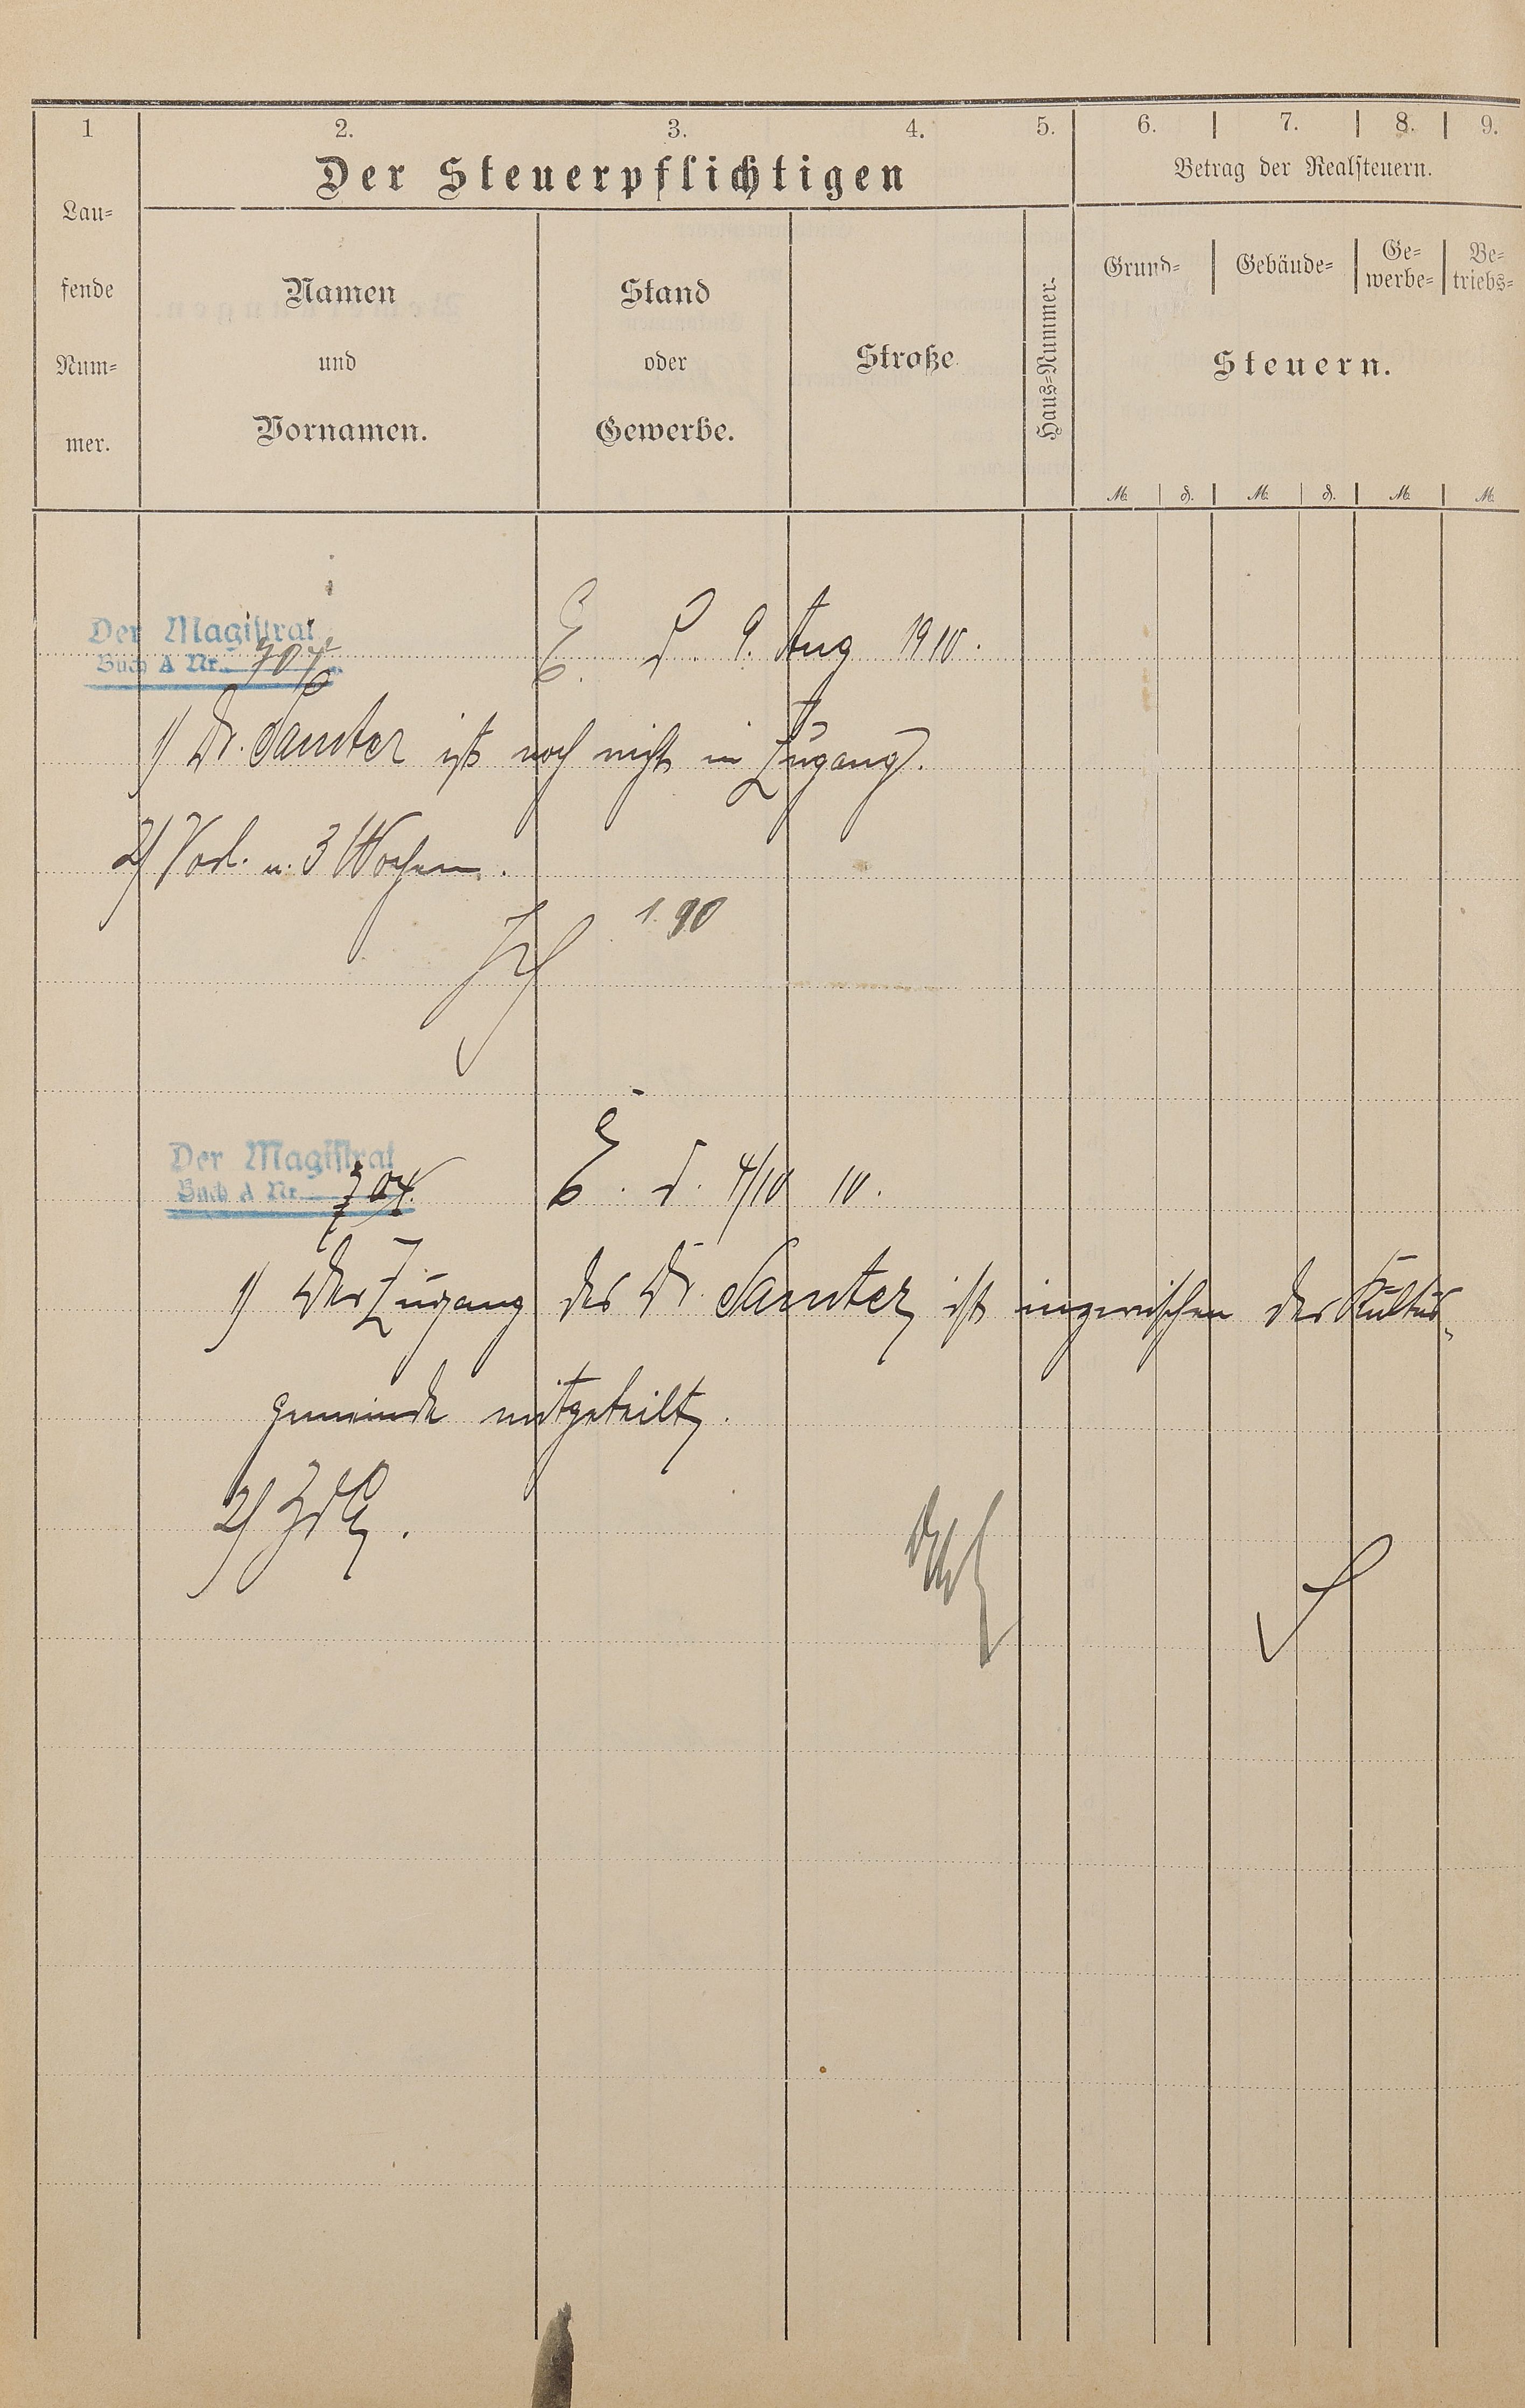 1 2. 3. 4. 5. 6. 7. 8. 9.
Der Steuerpflichtigen
Betrag der Realsteuern.
Lau-
fende
Num-
mer.
Namen
und
Vornamen.
Stand
oder
Gewerbe.
Straße
Haus-Nummer.
Grund- Gebäude- Ge-
werbe- Be-
triebs-
Steuern.
M. ₰. M. ₰. M. M.
Der Magistrat
Buch A Nr.
E. d. 9. Aug 1910.
1) Dr. Samter ist noch nicht in Zugang.
2) Vorl. n. 3 Wochen.
Der Magistrat
Buch A Nr. 704.
E. d. 4/10 10.
1) Der Zugang des Dr. Samter ist inzwischen der Kultus-
gemeinde mitgeteilt.
2) ZdA.